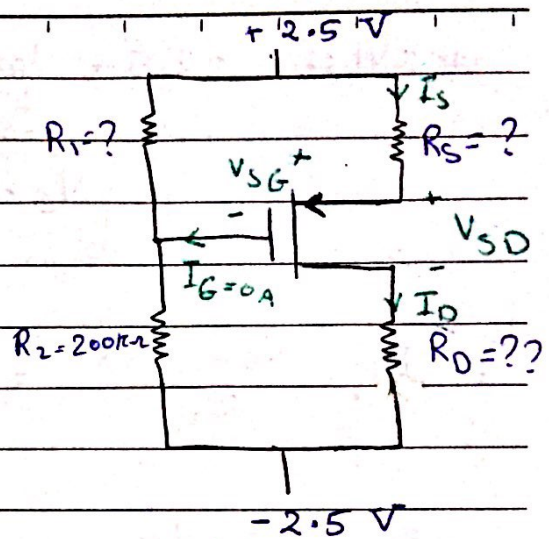 + 2.5 V
I_S
R_1=?
R_S=?
V_SG
+
-
+
V_SD
-
I_G=0A
I_D
R_2=200KΩ
R_D=??
-2.5 V